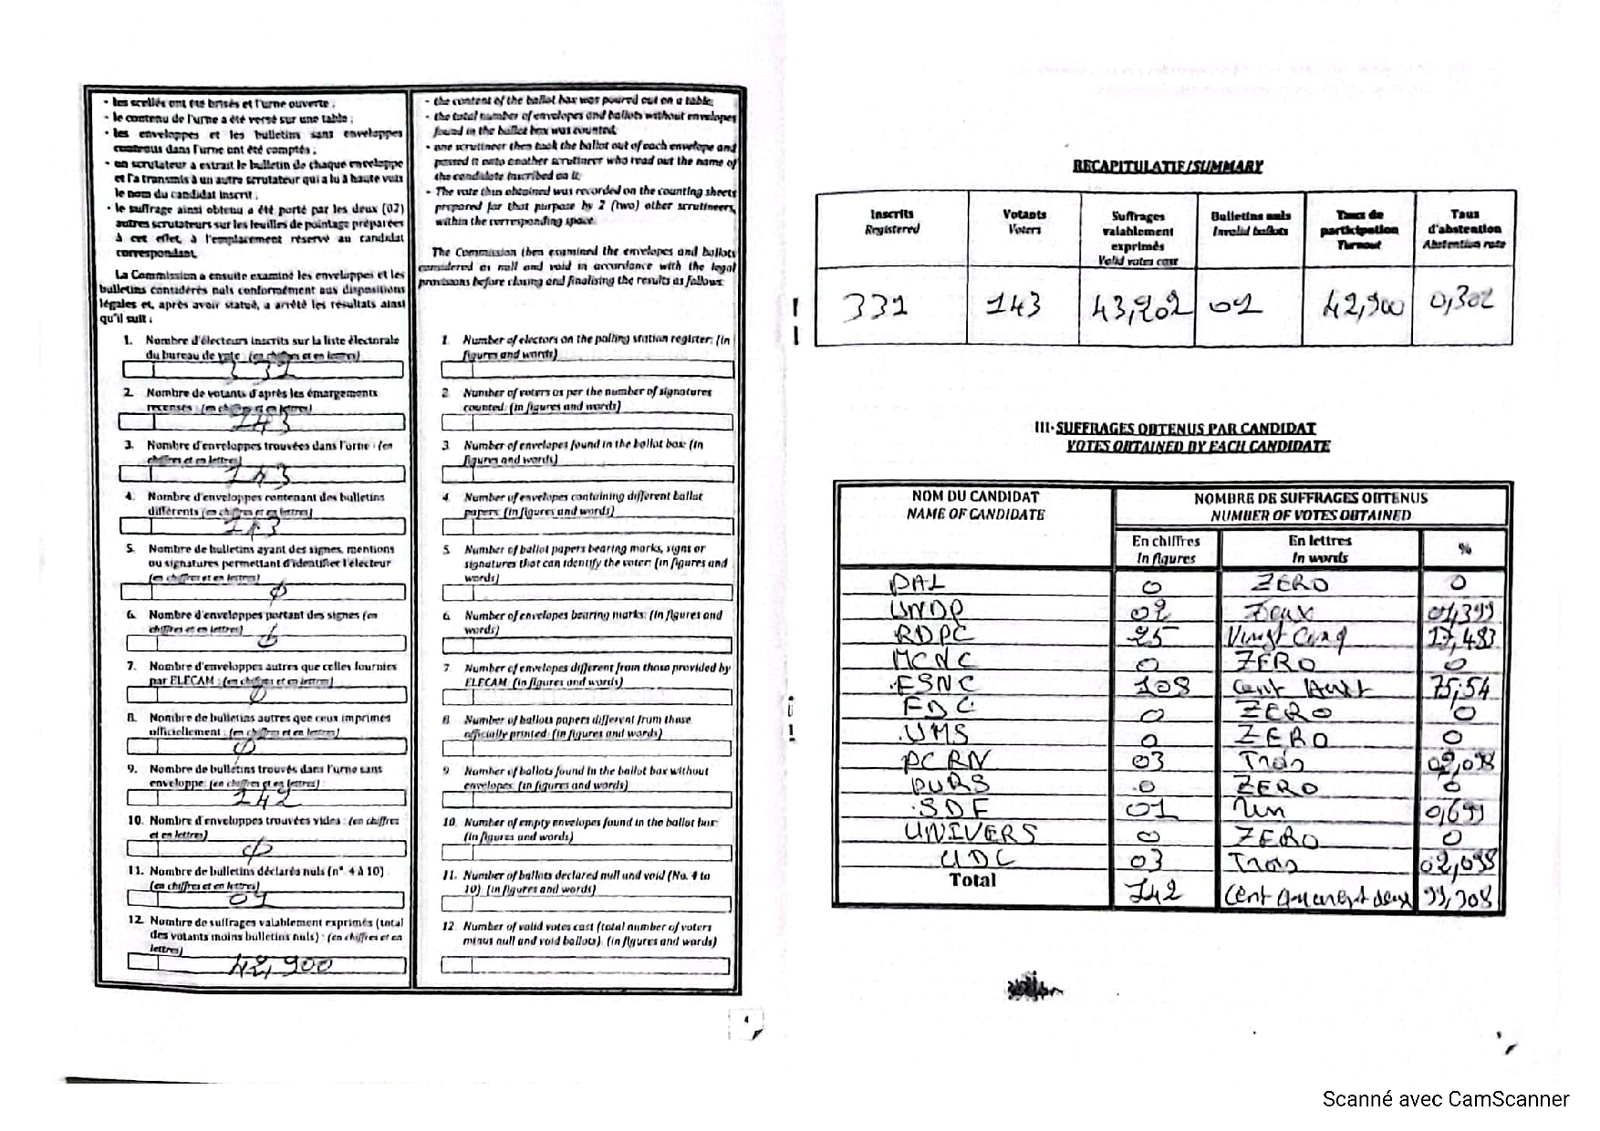 - les scellés ont été brisés et l'urne ouverte ;
- le contenu de l'urne a été versé sur une table ;
- les enveloppes et les bulletins sans enveloppes
contenus dans l'urne ont été comptés ;
- un scrutateur a extrait le bulletin de chaque enveloppe
et l'a transmis à un autre scrutateur qui a lu à haute voix
le nom du candidat inscrit ;
- le suffrage ainsi obtenu a été porté par les deux (02)
autres scrutateurs sur les feuilles de pointage préparées
à cet effet, à l'emplacement réservé au candidat
correspondant.
La Commission a ensuite examiné les enveloppes et les
bulletins considérés nuls conformément aux dispositions
légales et, après avoir statué, a arrêté les résultats ainsi
qu'il suit :
1. Nombre d'électeurs inscrits sur la liste électorale
du bureau de vote (en chiffres et en lettres)
331
2. Nombre de votants d'après les émargements
recensés : (en chiffres et en lettres)
143
3. Nombre d'enveloppes trouvées dans l'urne : (en
chiffres et en lettres)
143
4. Nombre d'enveloppes contenant des bulletins
différents (en chiffres et en lettres)
143
5. Nombre de bulletins ayant des signes, mentions
ou signatures permettant d'identifier l'électeur
(en chiffres et en lettres)
φ
6. Nombre d'enveloppes portant des signes (en
chiffres et en lettres)
φ
7. Nombre d'enveloppes autres que celles fournies
par ELECAM : (en chiffres et en lettres)
φ
8. Nombre de bulletins autres que ceux imprimés
officiellement : (en chiffres et en lettres)
φ
9. Nombre de bulletins trouvés dans l'urne sans
enveloppe: (en chiffres et en lettres)
142
10. Nombre d'enveloppes trouvées vides : (en chiffres
et en lettres)
φ
11. Nombre de bulletins déclarés nuls (n° 4 à 10)
(en chiffres et en lettres)
01
12. Nombre de suffrages valablement exprimés (total
des votants moins bulletins nuls) : (en chiffres et en
lettres)
42,900
- the content of the ballot box was poured out on a table;
- the total number of envelopes and ballots without envelopes
found in the ballot box was counted;
- one scrutineer then took the ballot out of each envelope and
passed it onto another scrutineer who read out the name of
the candidate inscribed on it;
- The vote thus obtained was recorded on the counting sheets
prepared for that purpose by 2 (two) other scrutineers,
within the corresponding space.
The Commission then examined the envelopes and ballots
considered as null and void in accordance with the legal
provisions before closing and finalising the results as follows:
1. Number of electors on the polling station register: (in
figures and words)
2. Number of voters as per the number of signatures
counted: (in figures and words)
3. Number of envelopes found in the ballot box: (in
figures and words)
4. Number of envelopes containing different ballot
papers: (in figures and words)
5. Number of ballot papers bearing marks, signs or
signatures that can identify the voter: (in figures and
words)
6. Number of envelopes bearing marks: (in figures and
words)
7. Number of envelopes different from those provided by
ELECAM: (in figures and words)
8. Number of ballots papers different from those
officially printed: (in figures and words)
9. Number of ballots found in the ballot box without
envelopes: (in figures and words)
10. Number of empty envelopes found in the ballot box:
(in figures and words)
11. Number of ballots declared null and void (No. 4 to
10): (in figures and words)
12. Number of valid votes cast (total number of voters
minus null and void ballots): (in figures and words)
4
RECAPITULATIF/SUMMARY
Inscrits Registered | Votants Voters | Suffrages valablement exprimés Valid votes cast | Bulletins nuls Invalid ballots | Taux de participation Turnout | Taux d'abstention Abstention rate
331 143 43,202 01 42,900 0,302
III-SUFFRAGES OBTENUS PAR CANDIDAT
VOTES OBTAINED BY EACH CANDIDATE
NOM DU CANDIDAT NOMBRE DE SUFFRAGES OBTENUS
NAME OF CANDIDATE NUMBER OF VOTES OBTAINED
En chiffres En lettres %
In figures In words
PAL 0 ZERO 0
UNDP 02 Deux 01,399
RDPC 25 Vingt Cinq 17,483
MCNC 0 ZERO 0
FSNC 108 Cent huit 75,54
FDC 0 ZERO 0
UMS 0 ZERO 0
PCRN 03 Trois 02,098
PURS 0 ZERO 0
SDF 01 Un 0,699
UNIVERS 0 ZERO 0
UDC 03 Trois 02,098
Total 142 Cent quarant deux 99,308
Scanné avec CamScanner